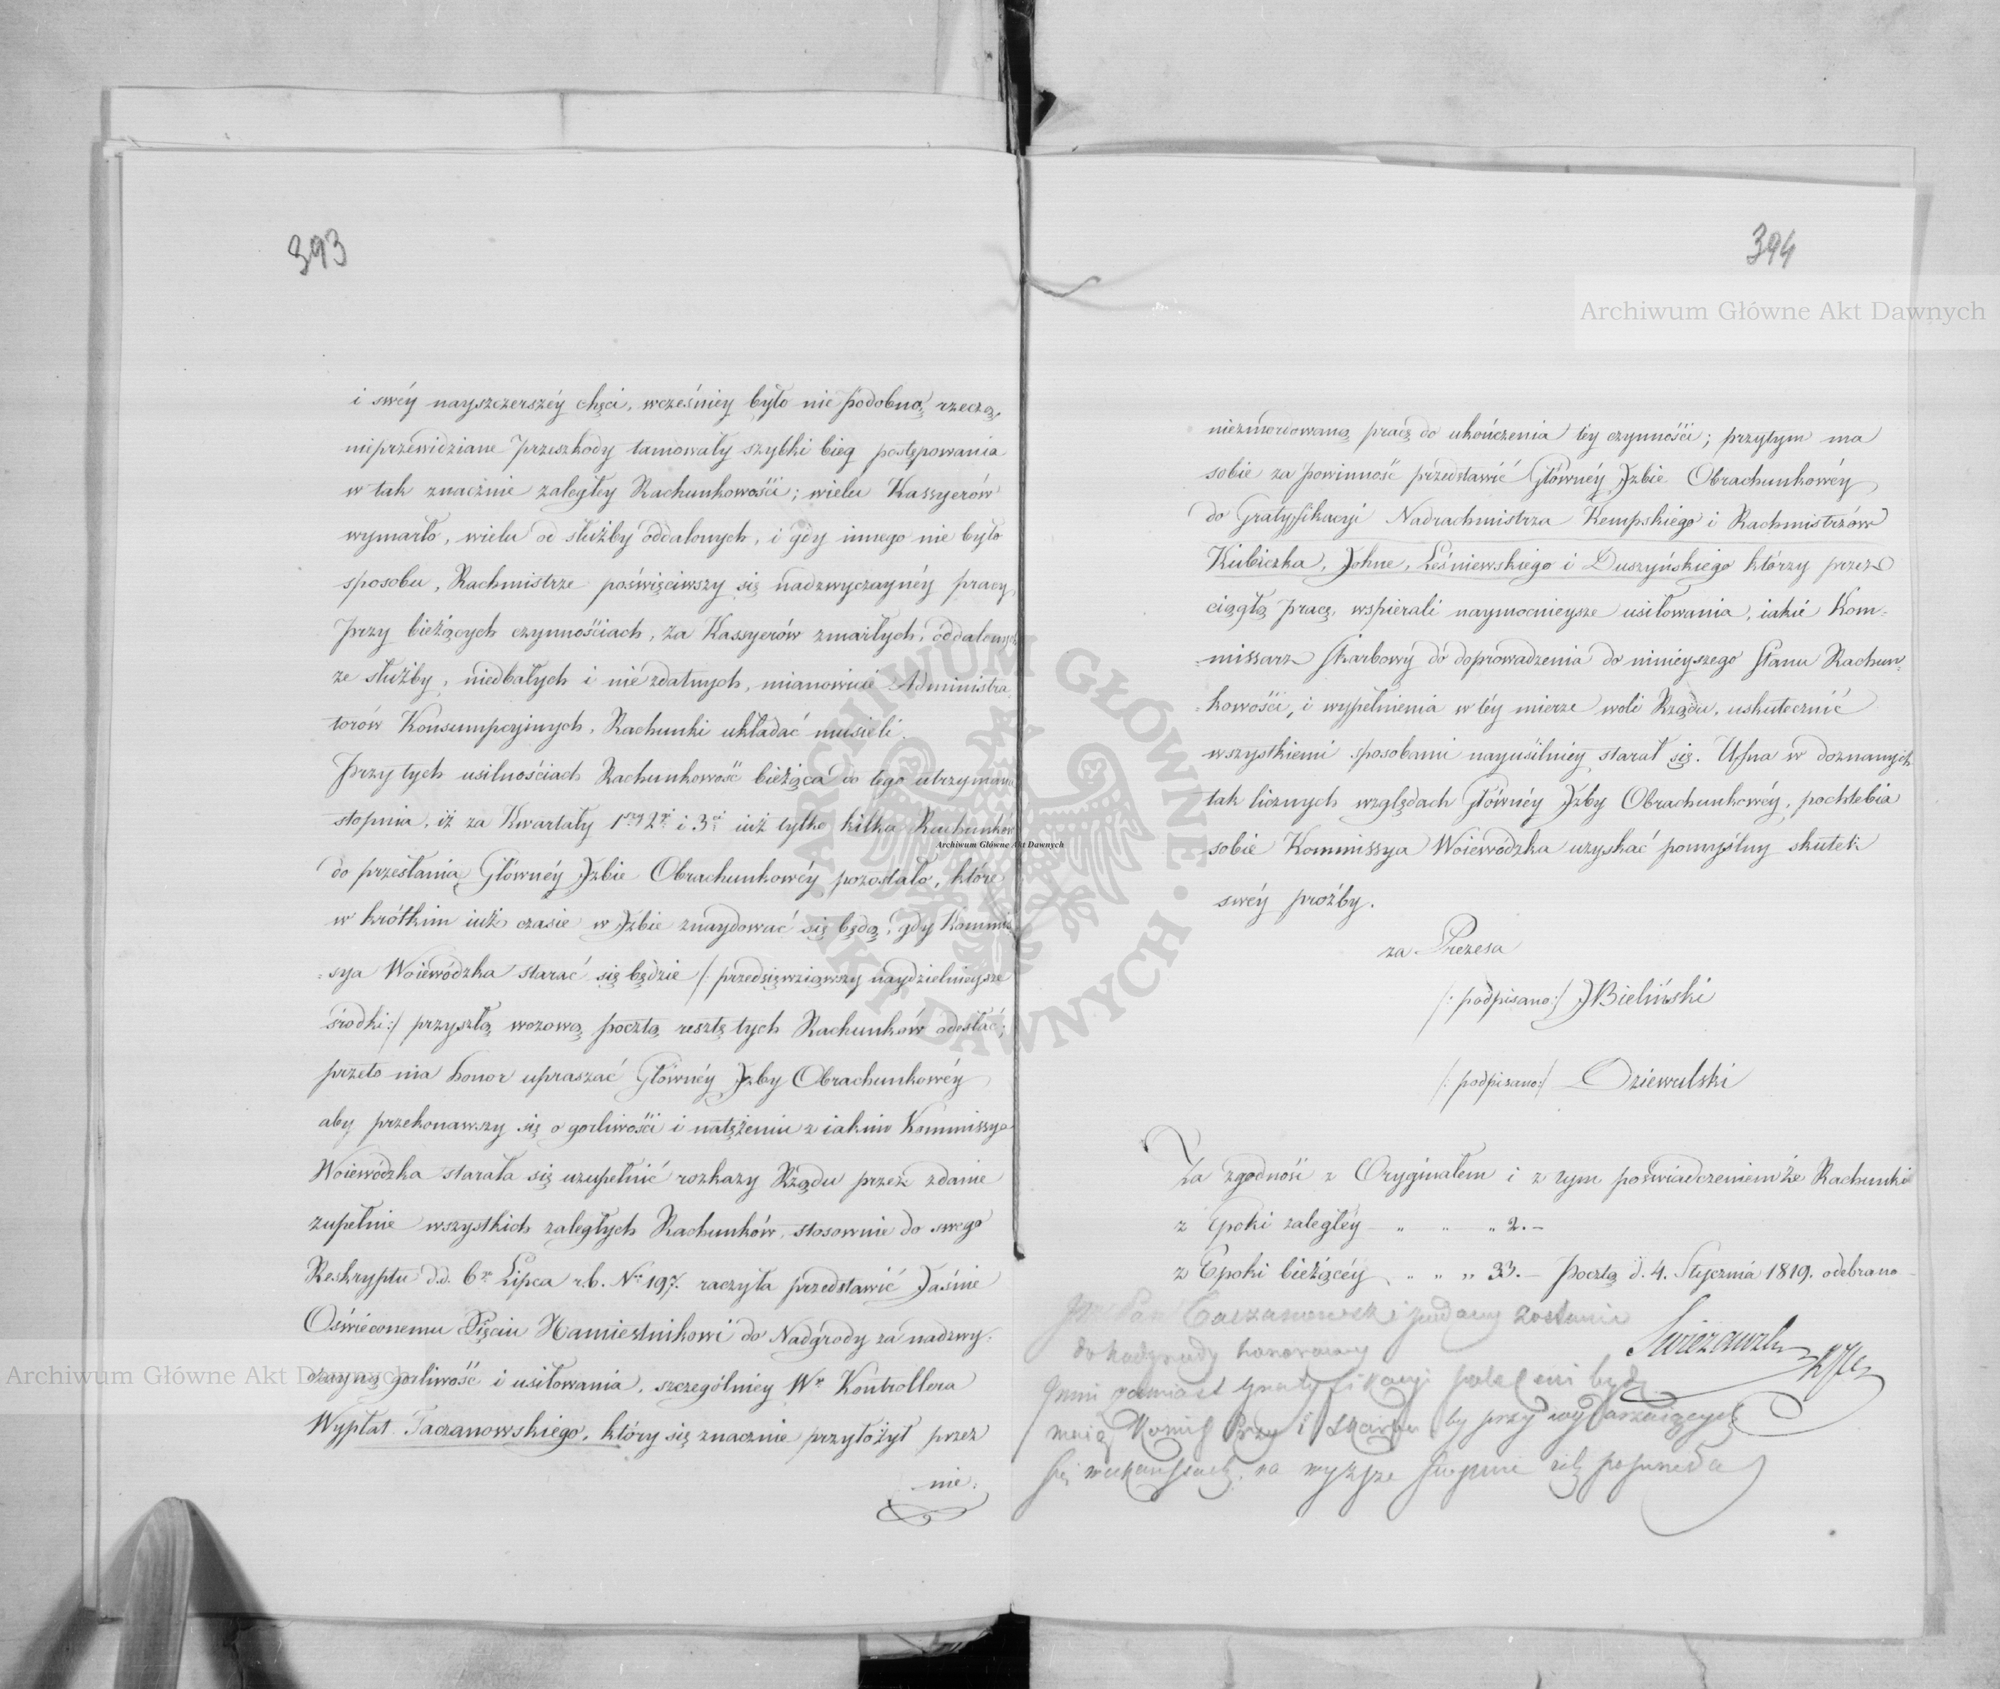 393
i swéy nayszczerszéy chęci, wcześniey było nie podobną rzeczą,
nieprzewidziane przeszkody tamowały szybki bieg postępowania
w tak znacznie zaległey Rachunkowości; wielu Kassyerów
wymarło, wielu od służby oddalonych, i gdy innego nie było
sposobu, Rachmistrze poświęciwszy się nadzwyczaynéy pracy,
przy bieżących czynnościach, za Kassyerów zmarłych, oddalonych
ze służby, niedbałych i niezdatnych, mianowicie Administra-
torów Konsumpcyinych, Rachunki układać musieli.
Przy tych usilnościach Rachunkowość bieżąca do tego utrzymana
stopnia, iż za Kwartały 1szy 2gi i 3ci iuż tylko kilka Rachunków
do przesłania Główney Izbie Obrachunkowéy pozostało, które
w krótkim iuż czasie w Izbie znaydować się będą, gdy Kommis-
=sya Woiewódzka starać się będzie /: przedsięwziąwszy naydzielnieysze
środki :/ przyszłą wozową pocztą resztę tych Rachunków odesłać;
przeto ma honor upraszać Główney Izby Obrachunkowéy
aby przekonawszy się o gorliwości i natężeniu z iakim Kommissya
Woiewódzka starała się uzupełnić rozkazy Rządu przez zdanie
zupełnie wszystkich zaległych Rachunków, stosownie do swego
Reskryptu d.d. 6go Lipca r.b. Nro 197. raczyła przedstawić Jaśnie
Oświeconemu Xięciu Namiestnikowi do Nadgrody za nadzwy-
czayną gorliwość i usiłowania, szczególniey Wo Kontrollera
Wypłat Taczanowskiego, który się znacznie przyłożył przez
nie:
394
niezmordowaną pracę do ukończenia tey czynności; przytym ma
sobie za powinność przedstawić Głównéy Izbie Obrachunkowéy
do Gratyfikacyi Nadrachmistrza Kempskiego i Rachmistrzów
Kubiczka, Johne, Leśniewskiego i Duszyńskiego którzy przez
ciągłą pracę, wspierali naymocnieysze usiłowania, iakie Kom-
=missarz Skarbowy do doprowadzenia do ninieyszego stanu Rachun-
=kowości, i wypełnienia w téy mierze woli Rządu, uskutecznić
wszystkiemi sposobami nayusilniey starał się. Ufna w doznanych
tak licznych względach Główney Izby Obrachunkowéy, pochlebia
sobie Kommissya Woiewódzka uzyskać pomyślny skutek
swéy proźby.
za Prezesa
/: podpisano :/ J Bieliński
/: podpisano :/ Dziewulski
Za zgodność z Oryginałem i z tym poświadczeniem że Rachunki
z Epoki zaległéy „ „ „ 2.–
z Epoki bieżącéy „ „ „ 33.– Pocztą d. 4. Stycznia 1819. odebrano
Pan Taczanowski podany zostanie
do nadgrody honorowey
Inni zamiast gratyfikacyi poleceni będą
Kommis Przy i Skarbu by przy wydarzaiących
się wakansach, na wyższe stopnie ich posunęła
Archiwum Główne Akt Dawnych
Archiwum Główne Akt Dawnych
Archiwum Główne Akt Dawnych
ARCHIWUM GŁÓWNE • AKT DAWNYCH •